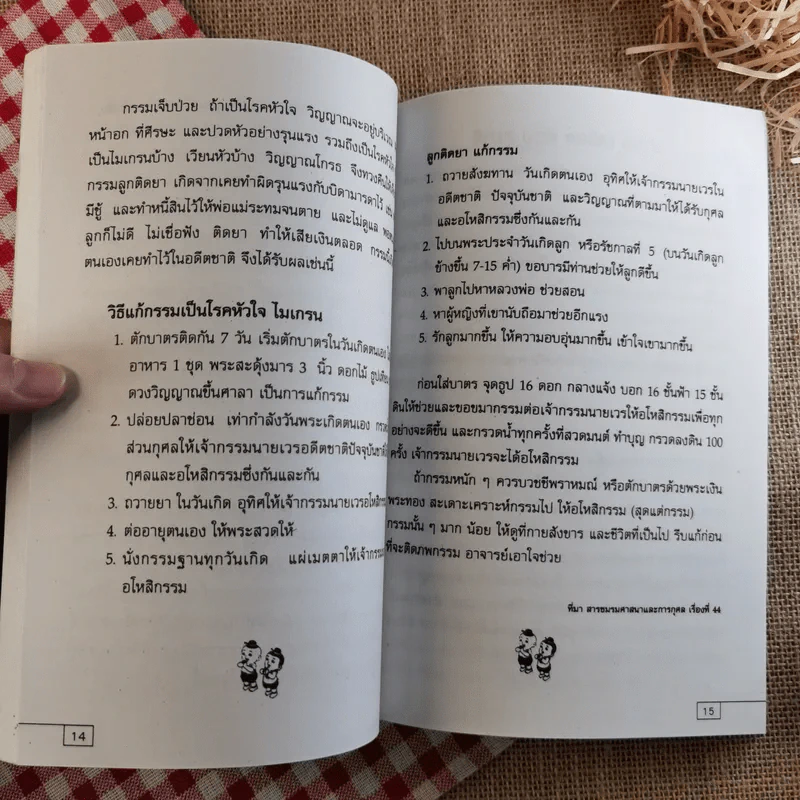 กรรมเจ็บป่วย ถ้าเป็นโรคหัวใจ วิญญาณจะอยู่บริเวณ
หน้าอก ที่ศีรษะ และปวดหัวอย่างรุนแรง รวมถึงเป็นโรคหัวใจ
เป็นไมเกรนบ้าง เวียนหัวบ้าง วิญญาณโกรธ จึงทวงคืน
กรรมลูกติดยา เกิดจากเคยทำผิดรุนแรงกับบิดามารดาไว้ เช่น
มีชู้ และทำหนี้สินไว้ให้พ่อแม่ระทมจนตาย และไม่ดูแล
ลูกก็ไม่ดี ไม่เชื่อฟัง ติดยา ทำให้เสียเงินตลอด กรรม
ตนเองเคยทำไว้ในอดีตชาติ จึงได้รับผลเช่นนี้
วิธีแก้กรรมเป็นโรคหัวใจ ไมเกรน
1. ตักบาตรติดกัน 7 วัน เริ่มตักบาตรในวันเกิดตนเอง
อาหาร 1 ชุด พระสะดุ้งมาร 3 นิ้ว ดอกไม้
ดวงวิญญาณขึ้นศาลา เป็นการแก้กรรม
2. ปล่อยปลาช่อน เท่ากำลังวันพระเกิดตนเอง
ส่วนกุศลให้เจ้ากรรมนายเวรอดีตชาติปัจจุบันชาติ
กุศลและอโหสิกรรมซึ่งกันและกัน
3. ถวายยา ในวันเกิด อุทิศให้เจ้ากรรมนายเวรอโหสิกรรม
4. ต่ออายุตนเอง ให้พระสวดให้
5. นั่งกรรมฐานทุกวันเกิด แผ่เมตตาให้เจ้ากรรม
อโหสิกรรม
14
ลูกติดยา แก้กรรม
1. ถวายสังฆทาน วันเกิดตนเอง อุทิศให้เจ้ากรรมนายเวรใน
อดีตชาติ ปัจจุบันชาติ และวิญญาณที่ตามมาให้ได้รับกุศล
และอโหสิกรรมซึ่งกันและกัน
2. ไปบนพระประจำวันเกิดลูก หรือรัชกาลที่ 5 (บนวันเกิดลูก
ข้างขึ้น 7-15 ค่ำ) ขอบารมีท่านช่วยให้ลูกดีขึ้น
3. พาลูกไปหาหลวงพ่อ ช่วยสอน
4. หาผู้หญิงที่เขานับถือมาช่วยอีกแรง
5. รักลูกมากขึ้น ให้ความอบอุ่นมากขึ้น เข้าใจเขามากขึ้น
ก่อนใส่บาตร จุดธูป 16 ดอก กลางแจ้ง บอก 16 ชั้นฟ้า 15 ชั้น
ดินให้ช่วยและขอขมากรรมต่อเจ้ากรรมนายเวรให้อโหสิกรรมเพื่อทุก
อย่างจะดีขึ้น และกรวดน้ำทุกครั้งที่สวดมนต์ ทำบุญ กรวดลงดิน 100
ครั้ง เจ้ากรรมนายเวรจะได้อโหสิกรรม
ถ้ากรรมหนัก ๆ ควรบวชชีพราหมณ์ หรือตักบาตรด้วยพระเงิน
พระทอง สะเดาะเคราะห์กรรมไป ให้อโหสิกรรม (สุดแต่กรรม)
กรรมนั้น ๆ มาก น้อย ให้ดูที่กายสังขาร และชีวิตที่เป็นไป รีบแก้ก่อน
ที่จะติดภพกรรม อาจารย์เอาใจช่วย
ที่มา สารชมรมศาสนาและการกุศล เรื่องที่ 44
15